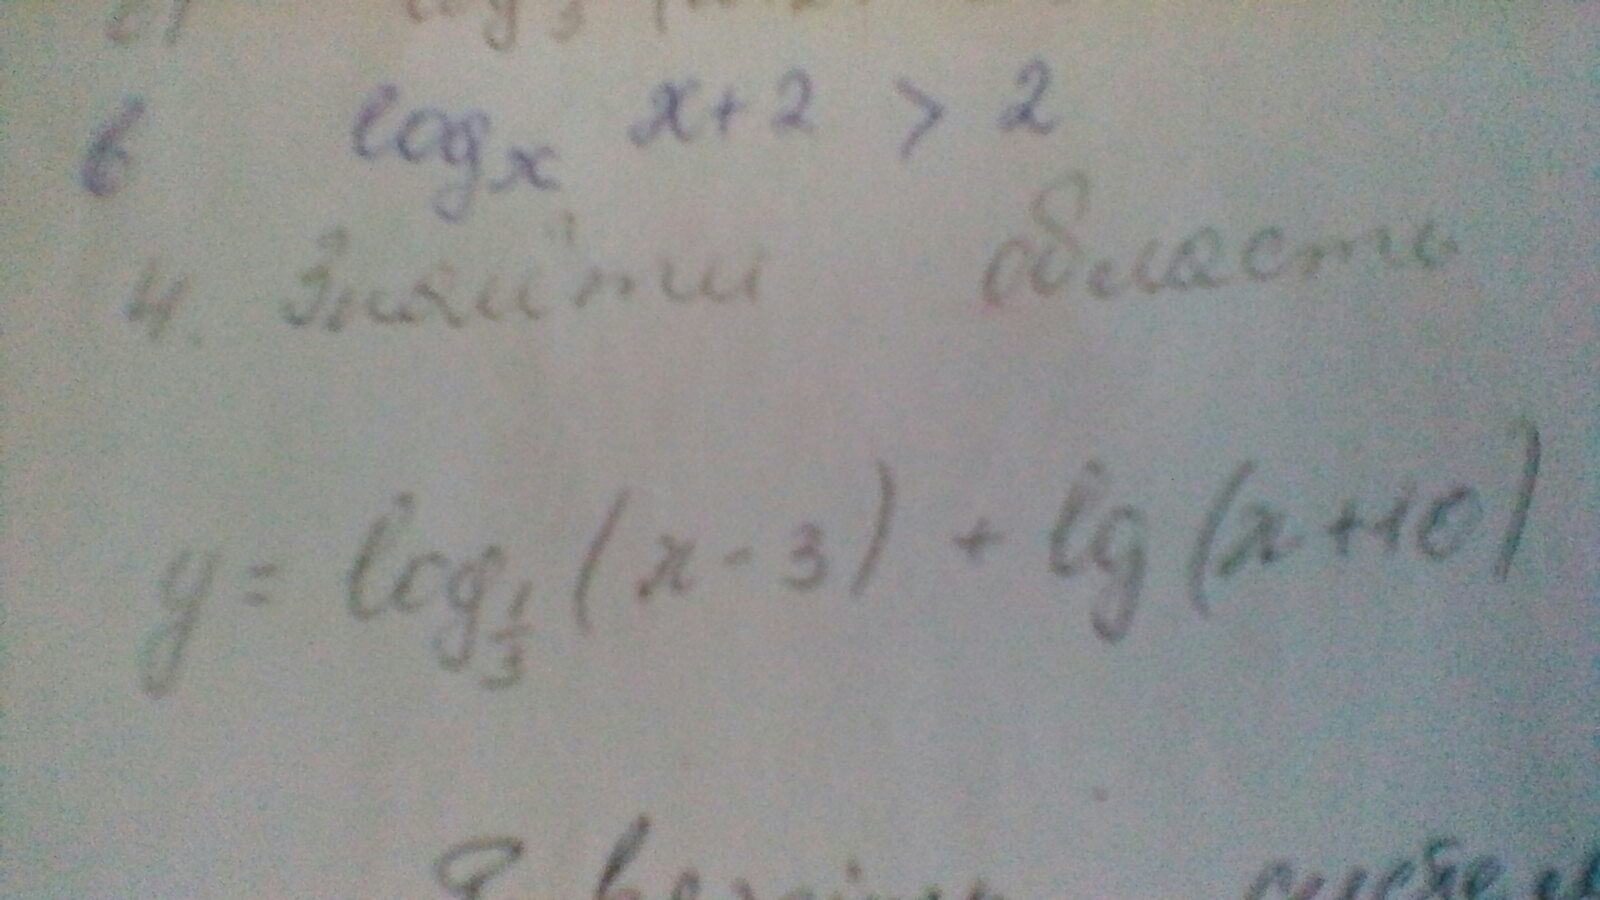 в log_x x+2 > 2
4. Знайти область
y = log_{1/3} (x - 3) + lg (x + 10)